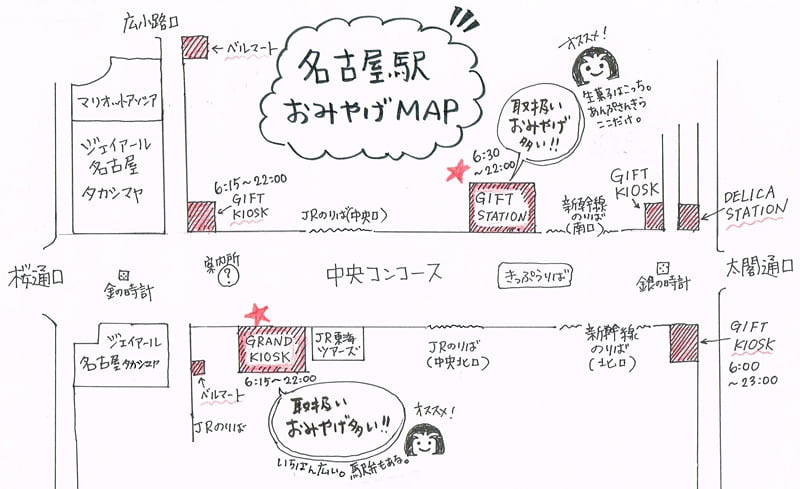 広小路口
ベルマート
名古屋駅
おみやげMAP
オススメ!
取扱い
おみやげ
多い!!
生菓子はこっち。
あんぷさんきら
ここだけ。
マリオットアソシア
ジェイアール
名古屋
タカシマヤ
6:15~22:00
GIFT
KIOSK
JRのりば(中央口)
6:30
~22:00
GIFT
STATION
新幹線
のりば
(南口)
GIFT
KIOSK
DELICA
STATION
桜通口
金の時計
案内所
?
中央コンコース
きっぷうりば
銀の時計
太閤通口
ジェイアール
名古屋タカシマヤ
ベルマート
JRのりば
GRAND
KIOSK
6:15~22:00
JR東海
ツアーズ
JRのりば
(中央北口)
新幹線
のりば
(北口)
GIFT
KIOSK
6:00
~23:00
取扱い
おみやげ多い!!
オススメ!
いちばん広い。駅弁もある。